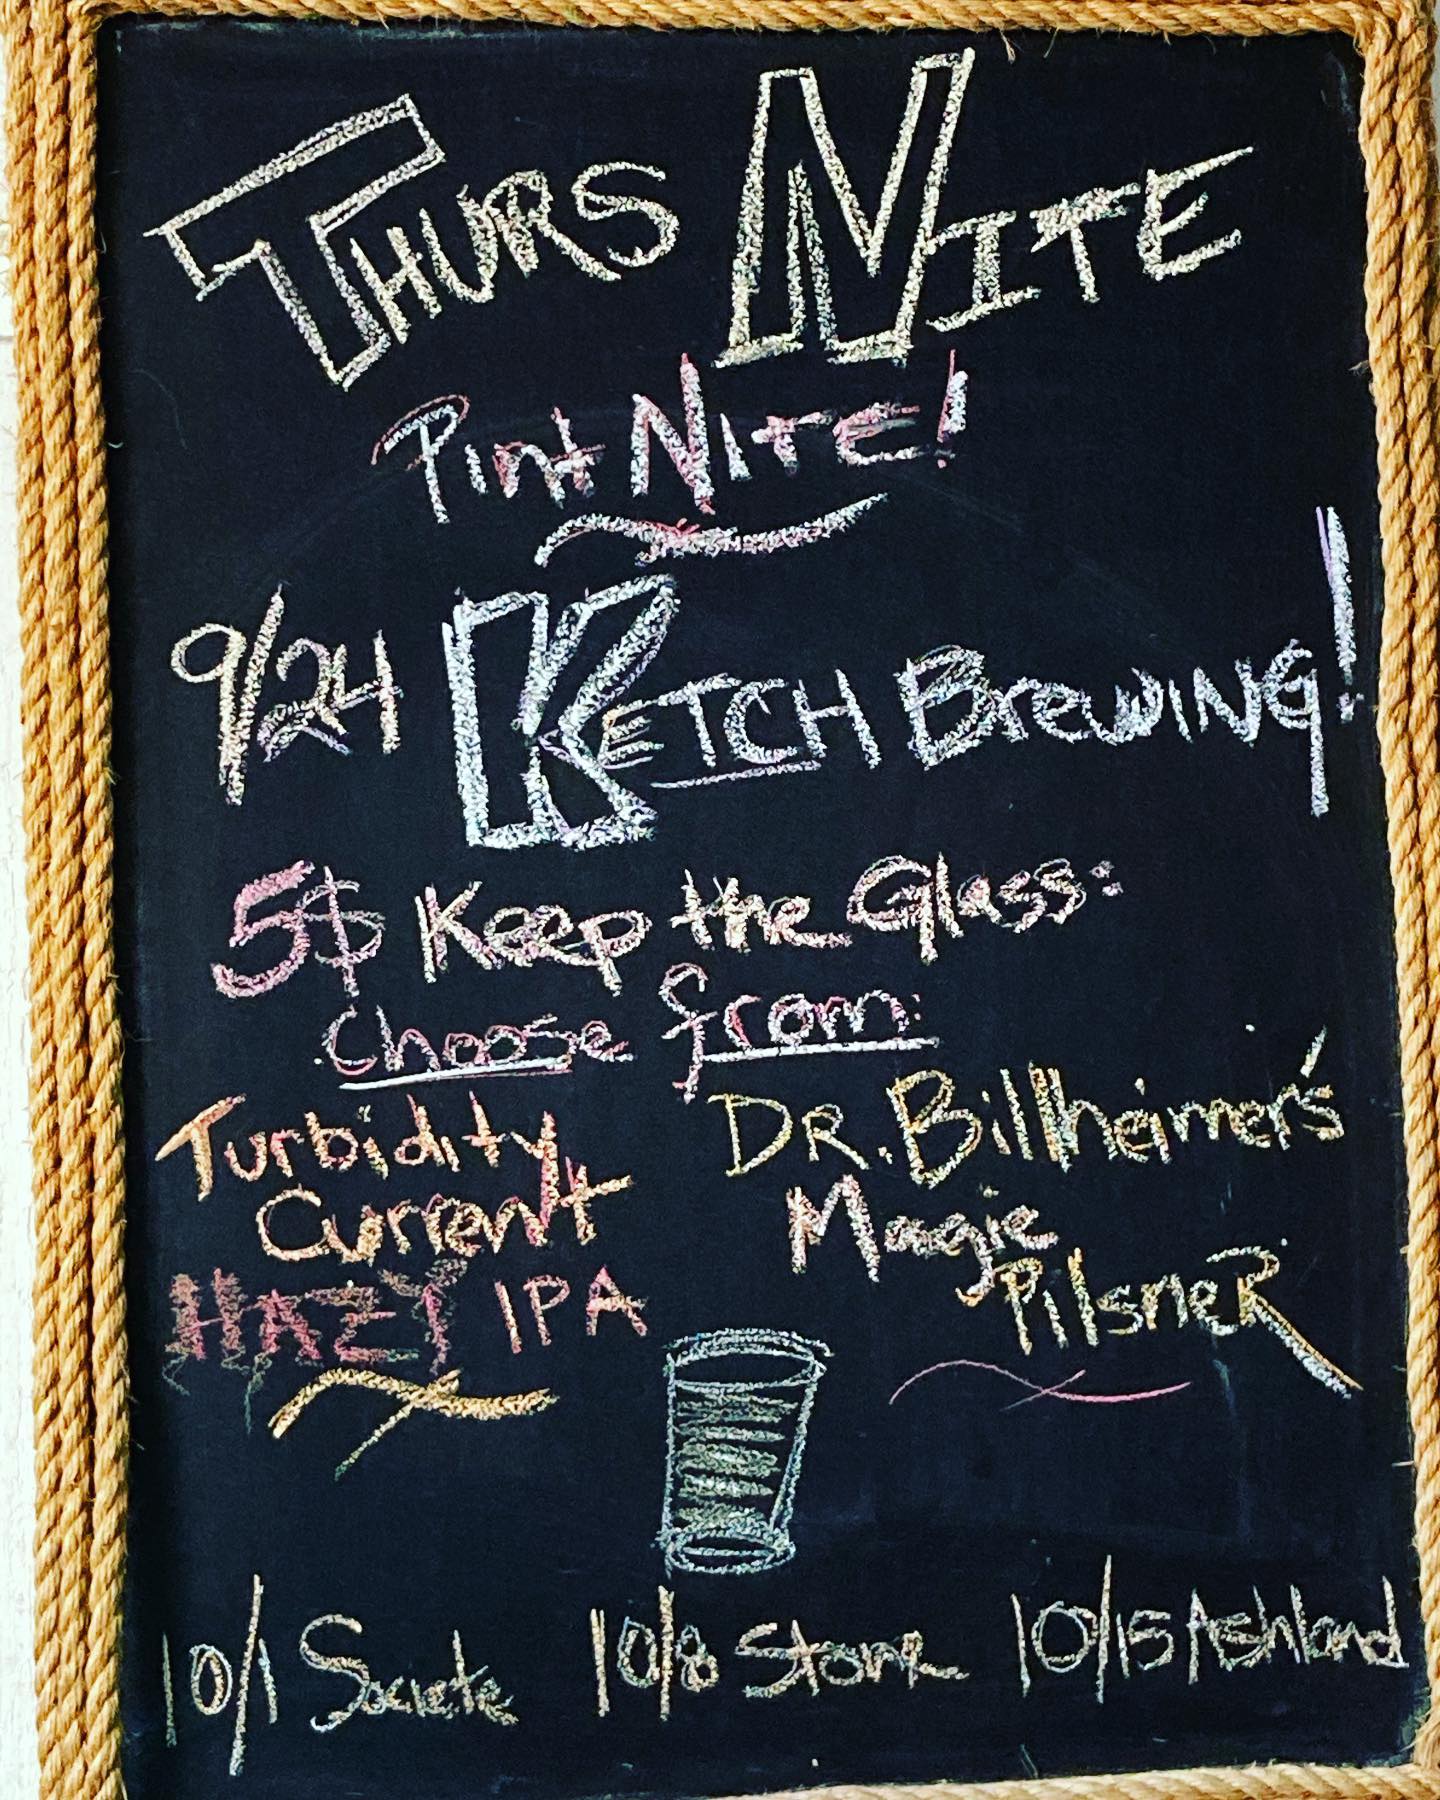 THURS NITE
Pint NITE!
9/24 KETCH BrewING!
5$ Keep the Glass:
Choose from:
Turbidity
Current
HAZY IPA
DR. Billheimer's
Magic
PilsneR
10/1 Societe
10/8 Stone
10/15 Ashland